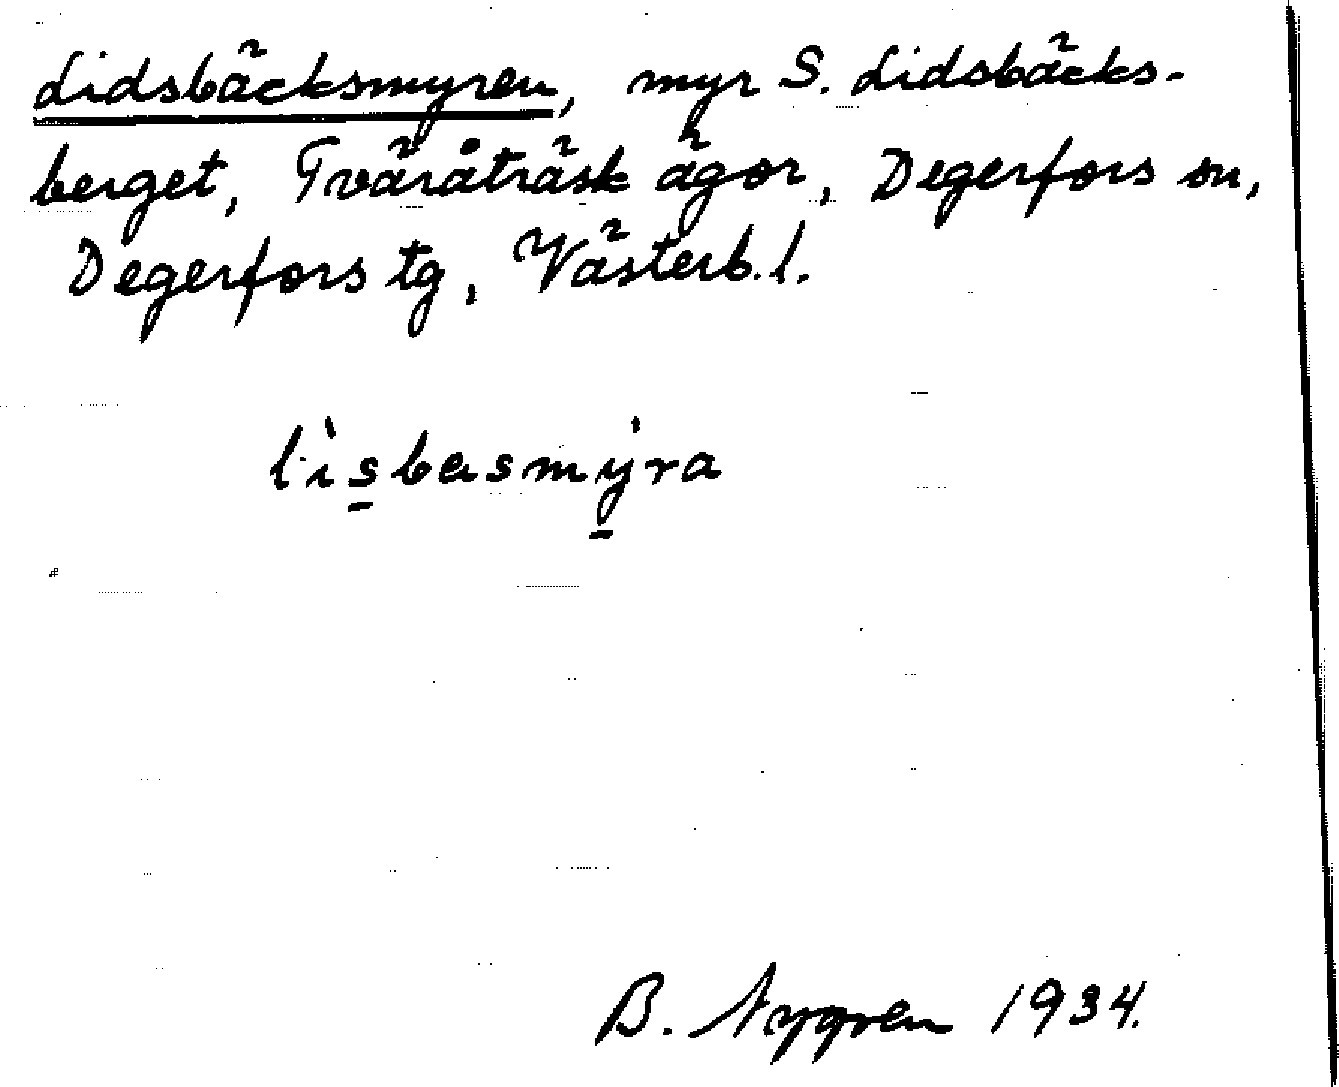 Lidsbäcksmyren, myr S. Lidsbäcks-
berget, Tväråträsk ägor, Degerfors sn,
Degerfors tg, Västerb. l.
lìs̠basmy̠̍ra
B. Nygren 1934.